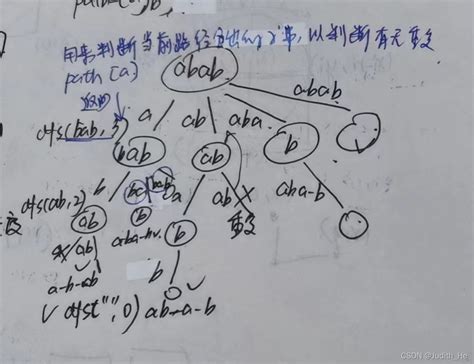 path
用来判断当前路径
以判断有无重复
path[a]
abab
abab
a
ab
aba
dfs(bab, 3)
bab
ab
b
b
a
ab
重复
aba-b
dfs(ab, 2)
ab
b
b
ab
a-b-ab
b
dfs("", 0) ab-a-b
CSDN @Judith_He